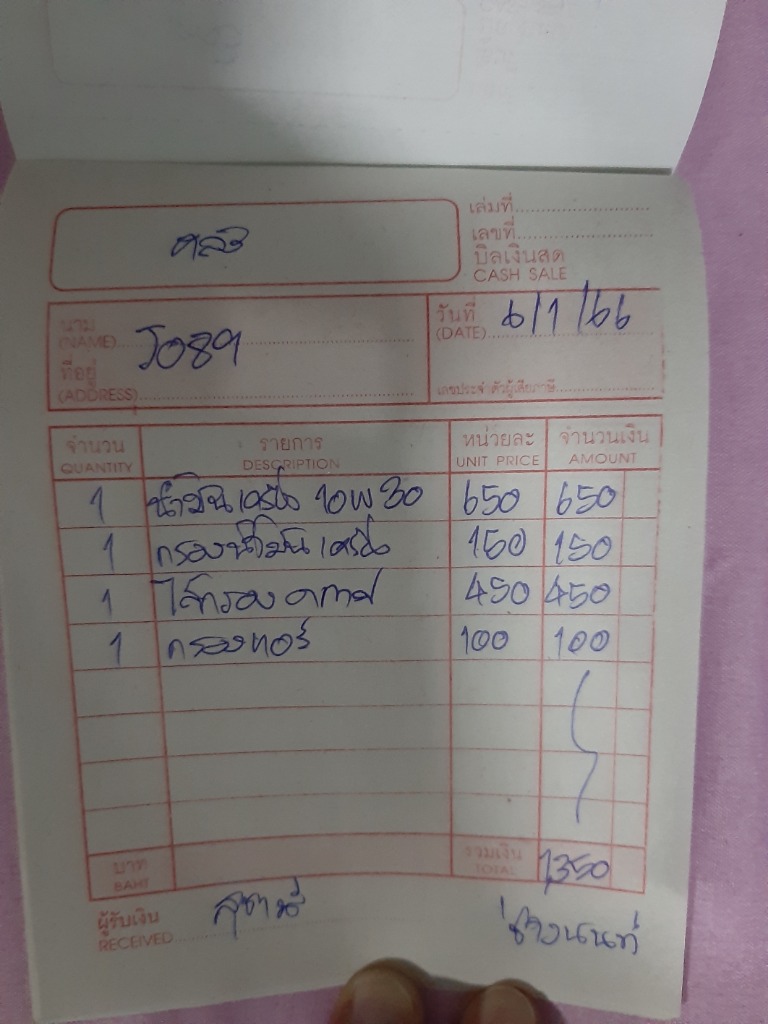 เล่มที่
เลขที่
บิลเงินสด
CASH SALE
นาม
(NAME) ว089
ที่อยู่
(ADDRESS)
วันที่
(DATE) 6/1/66
เลขประจำตัวผู้เสียภาษี
จำนวน รายการ หน่วยละ จำนวนเงิน
QUANTITY DESCRIPTION UNIT PRICE AMOUNT
1 น้ำมันเครื่อง 10W30 650 650
1 กรองน้ำมันเครื่อง 150 150
1 ไส้กรองอากาศ 450 450
1 กรองแอร์ 100 100
บาท รวมเงิน 1,350
BAHT TOTAL
ผู้รับเงิน
RECEIVED ช่างนนท์